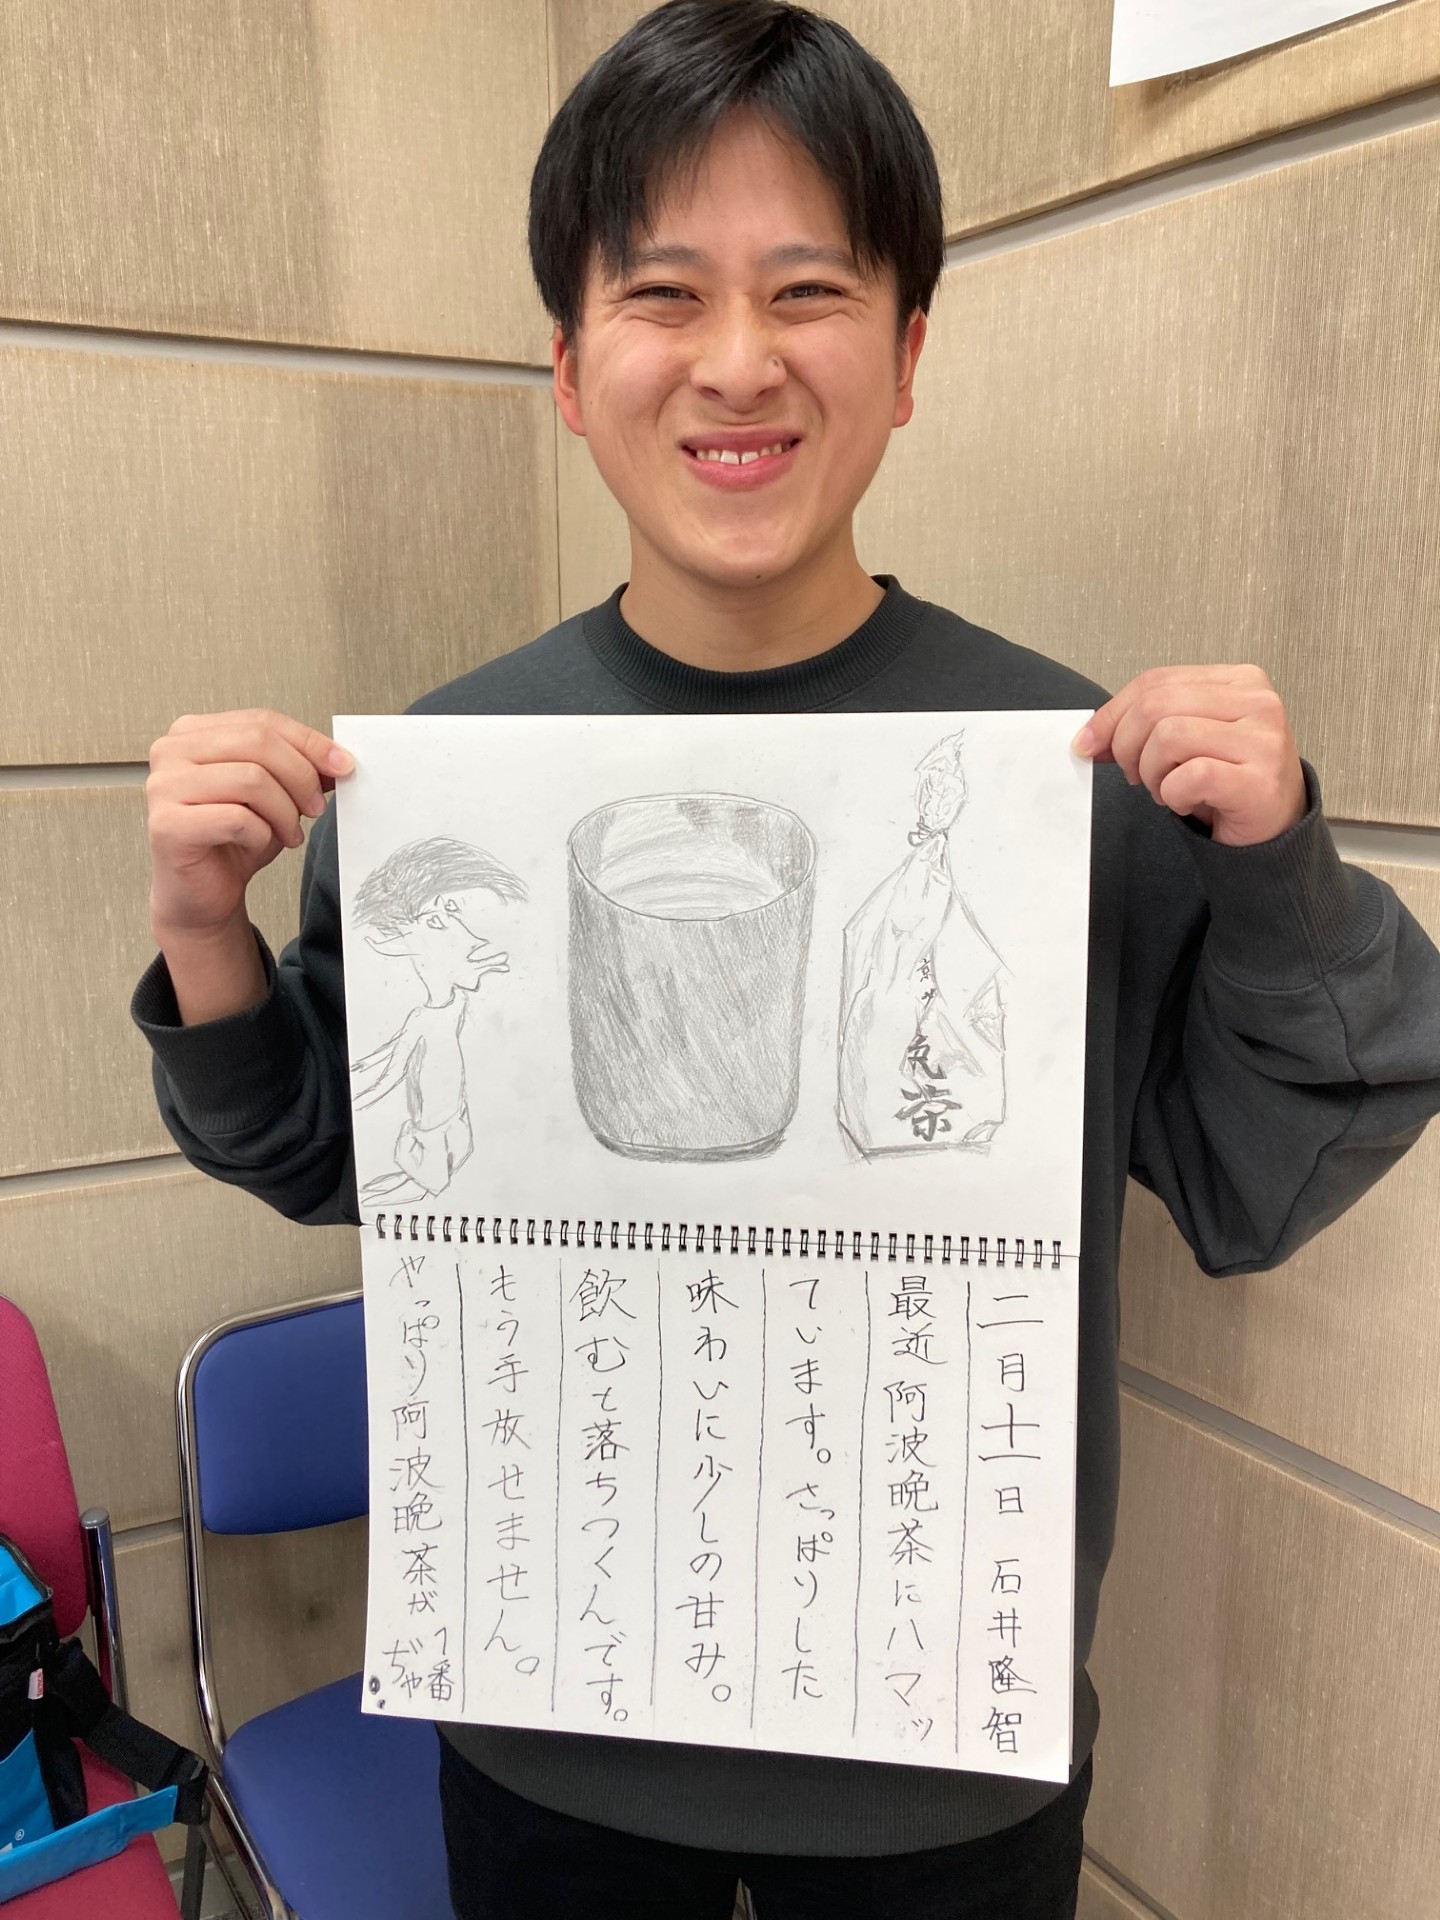 京
丸
茶
二月十一日 石井隆智
最近 阿波晩茶にハマッ
ています。さっぱりした
味わいに少しの甘み。
飲むと落ちつくんです。
もう手放せません。
やっぱり阿波晩茶が1番
ぢゃ